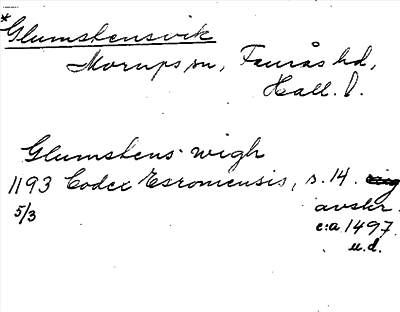 *Glumstensvik
Morups sn, Faurås hd,
Hall. l.
Glumstens wigh
1193 Codex Esromensis, s. 14.
5/3 avskr.
c:a 1497.
u.d.